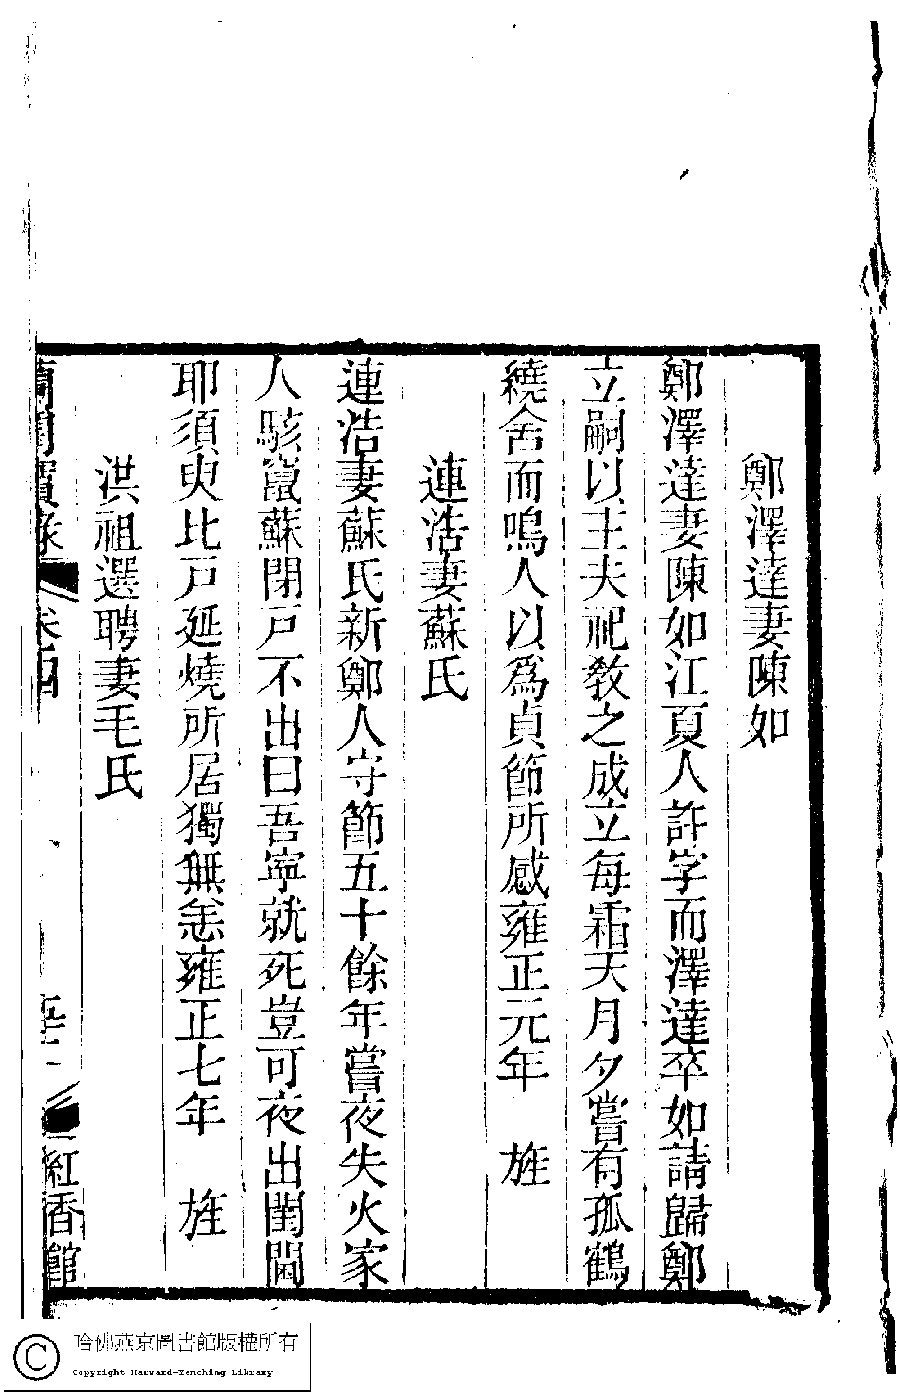 鄭澤達妻陳如
鄭澤達妻陳如江夏人許字而澤達卒如請歸鄭
立嗣以主夫祀教之成立每霜天月夕嘗有孤鶴
繞舍而鳴人以為貞節所感雍正元年　旌
連浩妻蘇氏
連浩妻蘇氏新鄭人守節五十餘年嘗夜失火家
人駭竄蘇閉戸不出曰吾寧就死豈可夜出閨閫
耶須臾比戸延燒所居獨無恙雍正七年　旌
洪祖選聘妻毛氏
蘭閨寶錄　卷四　紅香館
哈佛燕京圖書館版權所有
Copyright Harvard-Yenching Library